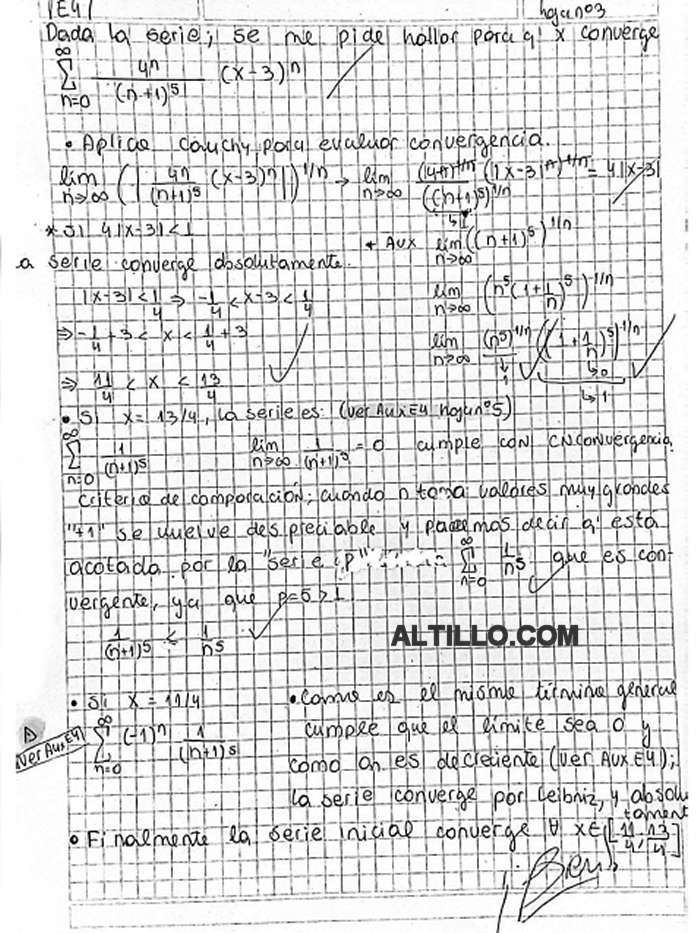 1E41
hoja nº3
Dada la serie; se me pide hallar para q' x converge
∞ Σ n=0 4ⁿ/(n+1)⁵ (x-3)ⁿ
• Aplico Cauchy para evaluar convergencia.
lim n→∞ (|4ⁿ/(n+1)⁵ (x-3)ⁿ|)^1/n → lim n→∞ (|4ⁿ|)^1/n (|x-3|ⁿ)^1/n / ((n+1)⁵)^1/n = 4|x-3|
↳1
* Si 4|x-3|<1
* Aux lim n→∞ ((n+1)⁵)^1/n
a serie converge absolutamente.
|x-3|<1/4 ⇒ -1/4 < x-3 < 1/4
lim n→∞ (n⁵(1+1/n)⁵)^1/n
⇒ -1/4+3 < x < 1/4+3
lim n→∞ (n⁵)^1/n ((1+1/n)⁵)^1/n
↓ 1 ↳0
⇒ 11/4 < x < 13/4
↳1
• Si x = 13/4, la serie es: (ver Aux E4 hoja nº5)
∞ Σ n=0 1/(n+1)⁵ lim n→∞ 1/(n+1)⁵ = 0 cumple con CNConvergencia.
Criterio de comparación; cuando n toma valores muy grandes
"+1" se vuelve despreciable y podemos decir q' está
acotada por la "serie P" ∞ Σ n=0 1/n⁵ que es con-
vergente, ya que p=5>1
1/(n+1)⁵ ≤ 1/n⁵
ALTILLO.COM
• Si x = 11/4
• Como es el mismo término general
∞ Σ n=0 (-1)ⁿ 1/(n+1)⁵
cumple que el límite sea 0 y
ver Aux E4
como an es decreciente (ver Aux E4);
la serie converge por Leibniz, y absolu
tament
• Finalmente la serie inicial converge ∀ x∈[11/4, 13/4]